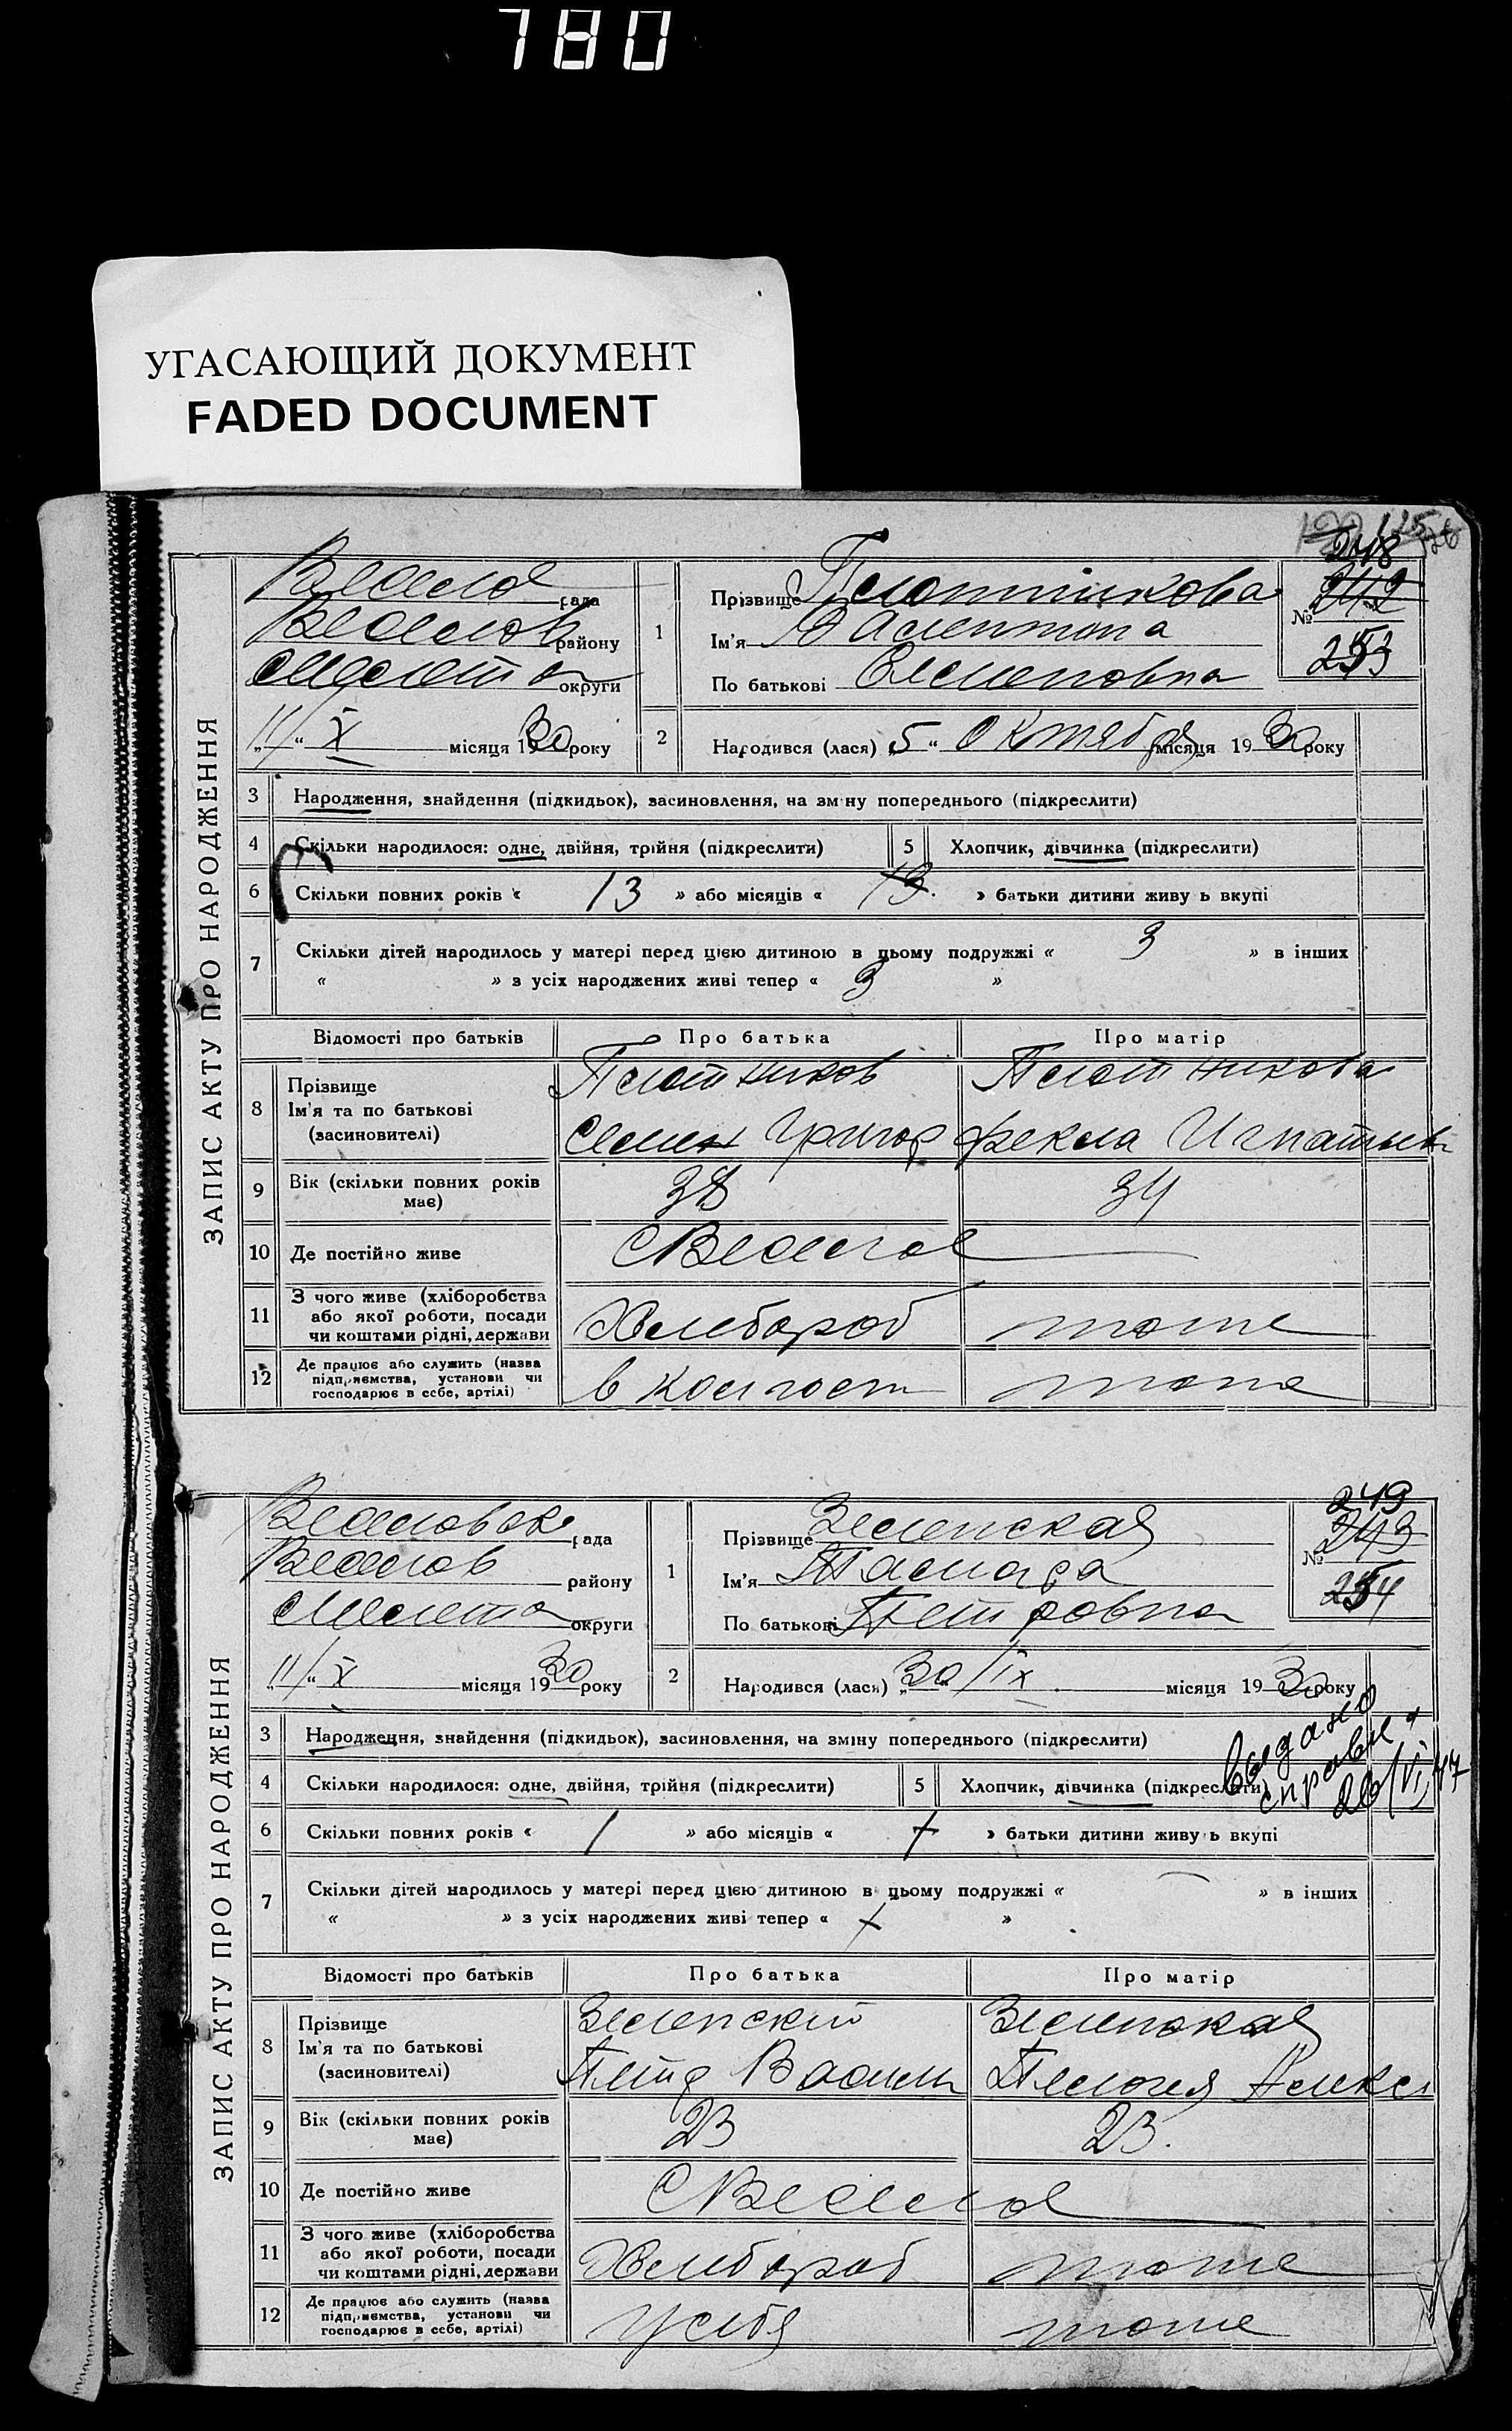 780
УГАСАЮЩИЙ ДОКУМЕНТ
FADED DOCUMENT
ЗАПИС АКТУ ПРО НАРОДЖЕННЯ
248
Веселов району
округи
1
Прізвище Плотникова
Ім'я Валентина
По батькові Семеновна
№ 242
253
„11“ X місяця 1930 року
2
Народився (лася) „5“ Октября місяця 1930 року
3 Народження, знайдення (підкидьок), засиновлення, на зміну попереднього (підкреслити)
4 Скільки народилося: одне, двійня, трійня (підкреслити)
5 Хлопчик, дівчинка (підкреслити)
6 Скільки повних років « 13 » або місяців « 13. » батьки дитини живу ь вкупі
7 Скільки дітей народилось у матері перед цією дитиною в цьому подружжі « 3 » в інших
« » з усіх народжених живі тепер « 3 »
Відомості про батьків Про батька Про матір
8 Прізвище Плотников Плотникова
Ім'я та по батькові
(засиновителі) Семен Григор Фекла Игнатьев
9 Вік (скільки повних років має) 38 34
10 Де постійно живе С Веселое
11 З чого живе (хліборобства
або якої роботи, посади
чи коштами рідні, держави Хлебороб тоже
12 Де працює або служить (назва
підприємства, установи чи
господарює в себе, артілі) в колхозе тоже
ЗАПИС АКТУ ПРО НАРОДЖЕННЯ
249
рада
Веселов району
округи
1
Прізвище Зеленская
Ім'я Тамара
По батькові Петровна
№ 243
254
„11“ X місяця 1930 року
2
Народився (лася) „30/IX місяця 1930 року
3 Народження, знайдення (підкидьок), засиновлення, на зміну попереднього (підкреслити)
видано
справк
26/VI 47
4 Скільки народилося: одне, двійня, трійня (підкреслити)
5 Хлопчик, дівчинка (підкреслити)
6 Скільки повних років « 1 » або місяців « » батьки дитини живу ь вкупі
7 Скільки дітей народилось у матері перед цією дитиною в цьому подружжі « » в інших
« » з усіх народжених живі тепер « »
Відомості про батьків Про батька Про матір
8 Прізвище Зеленский Зеленская
Ім'я та по батькові
(засиновителі) Петр Василь Пелогея Алекс
9 Вік (скільки повних років має) 23 23.
10 Де постійно живе С Веселое
11 З чого живе (хліборобства
або якої роботи, посади
чи коштами рідні, держави Хлебороб тоже
12 Де працює або служить (назва
підприємства, установи чи
господарює в себе, артілі) У себя тоже